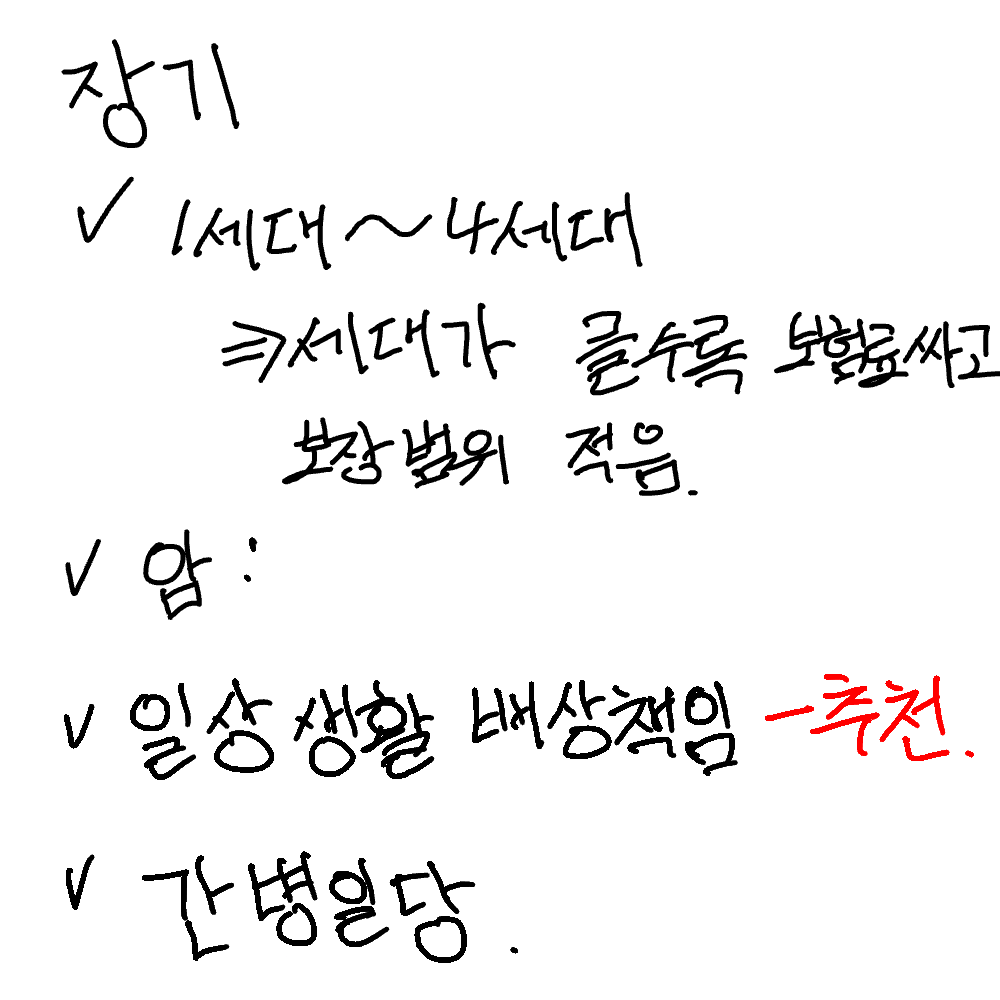 장기
✓ 1세대~4세대
⇒세대가 클수록 보험료싸고
보장범위 적음.
✓ 암:
✓ 일상생활 배상책임 -추천.
✓ 간병일당.